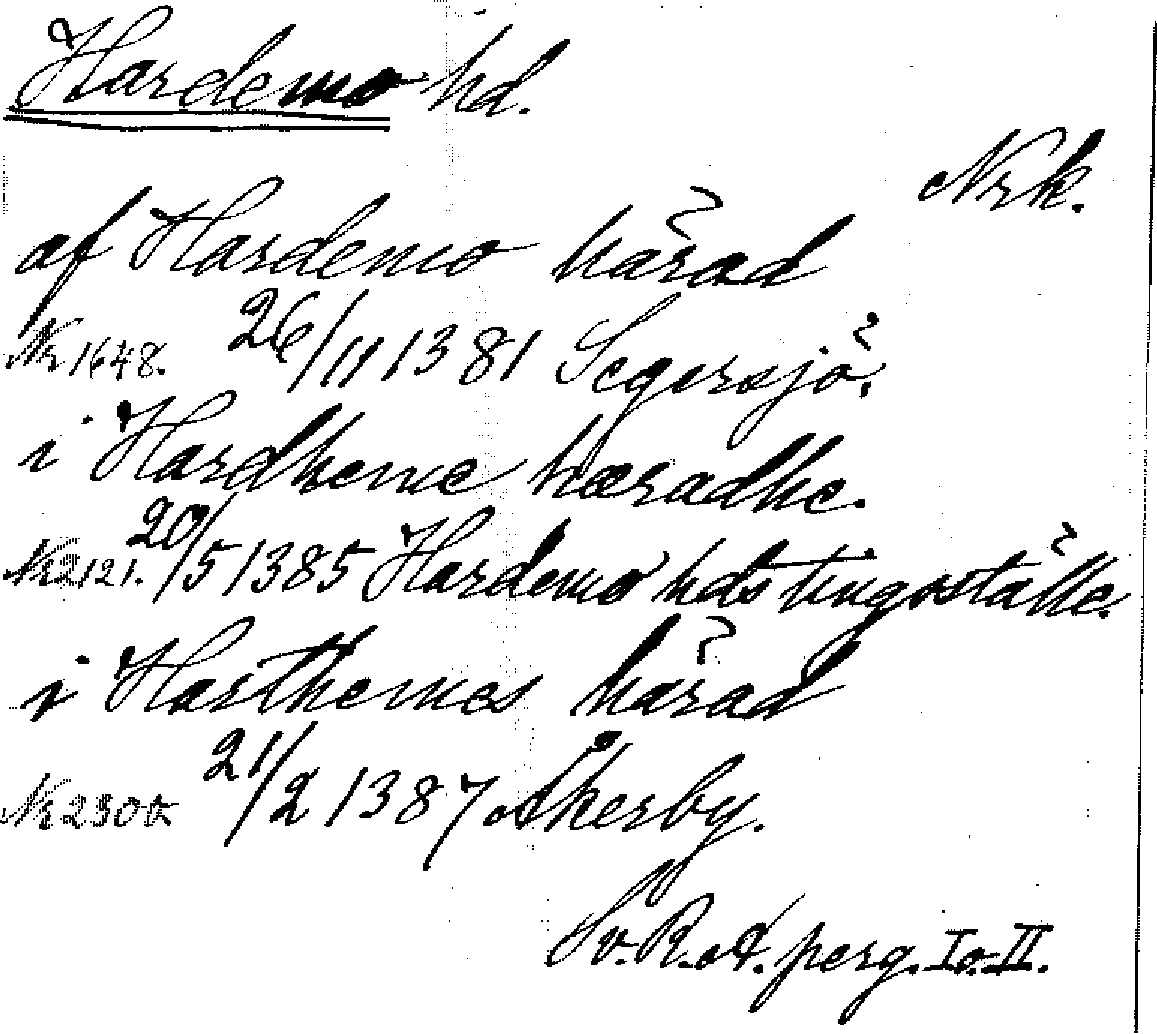 Hardemo hd.
Nrk.
af Hardemo härad
Nr 1648. 26/11 1381 Segersjö.
i Hardheme hæradhe.
Nr 2121. 20/5 1385 Hardemo hds tingsställe.
i Harthemes härad
Nr 2305 21/2 1387 Åkerby.
Sv. R. A. perg. I o. II.